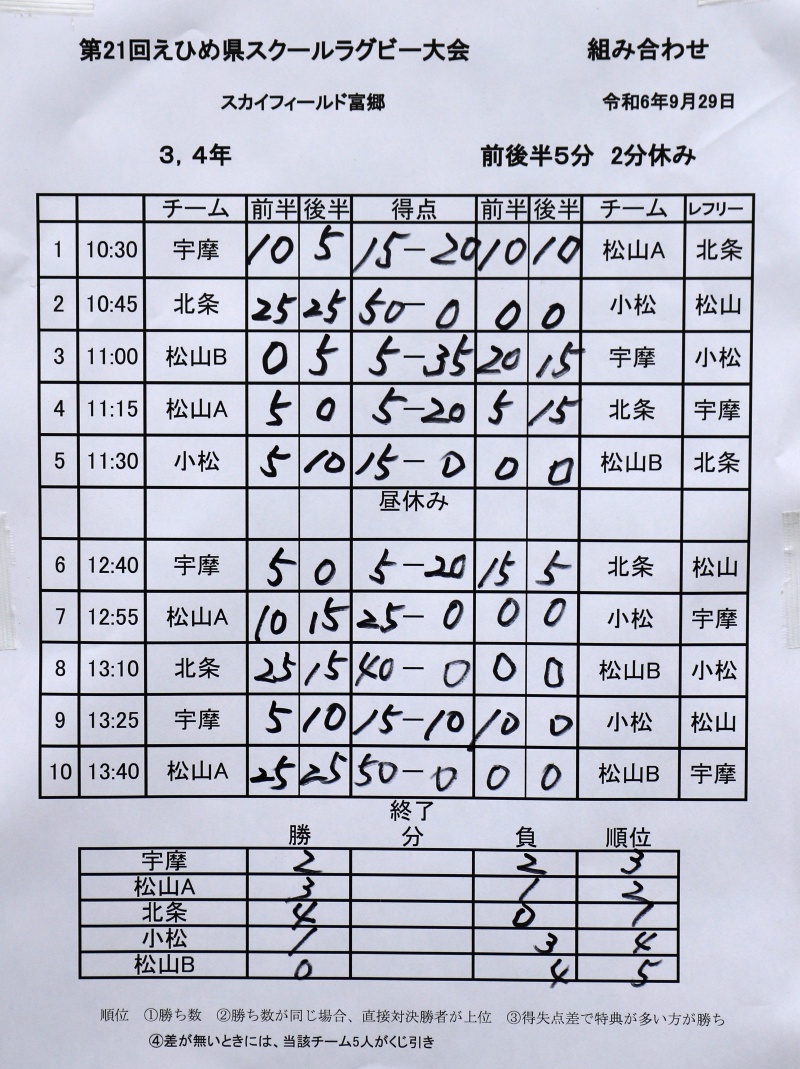 第21回えひめ県スクールラグビー大会 組み合わせ
スカイフィールド富郷 令和6年9月29日
3，4年 前後半5分 2分休み
チーム 前半 後半 得点 前半 後半 チーム レフリー
1 10:30 宇摩 10 5 15-20 10 10 松山A 北条
2 10:45 北条 25 25 50-0 0 0 小松 松山
3 11:00 松山B 0 5 5-35 20 15 宇摩 小松
4 11:15 松山A 5 0 5-20 5 15 北条 宇摩
5 11:30 小松 5 10 15-0 0 0 松山B 北条
昼休み
6 12:40 宇摩 5 0 5-20 15 5 北条 松山
7 12:55 松山A 10 15 25-0 0 0 小松 宇摩
8 13:10 北条 25 15 40-0 0 0 松山B 小松
9 13:25 宇摩 5 10 15-10 10 0 小松 松山
10 13:40 松山A 25 25 50-0 0 0 松山B 宇摩
終了
勝 分 負 順位
宇摩 2 2 3
松山A 3 1 2
北条 4 0 1
小松 1 3 4
松山B 0 4 5
順位 ①勝ち数 ②勝ち数が同じ場合、直接対決勝者が上位 ③得失点差で特典が多い方が勝ち
④差が無いときには、当該チーム5人がくじ引き